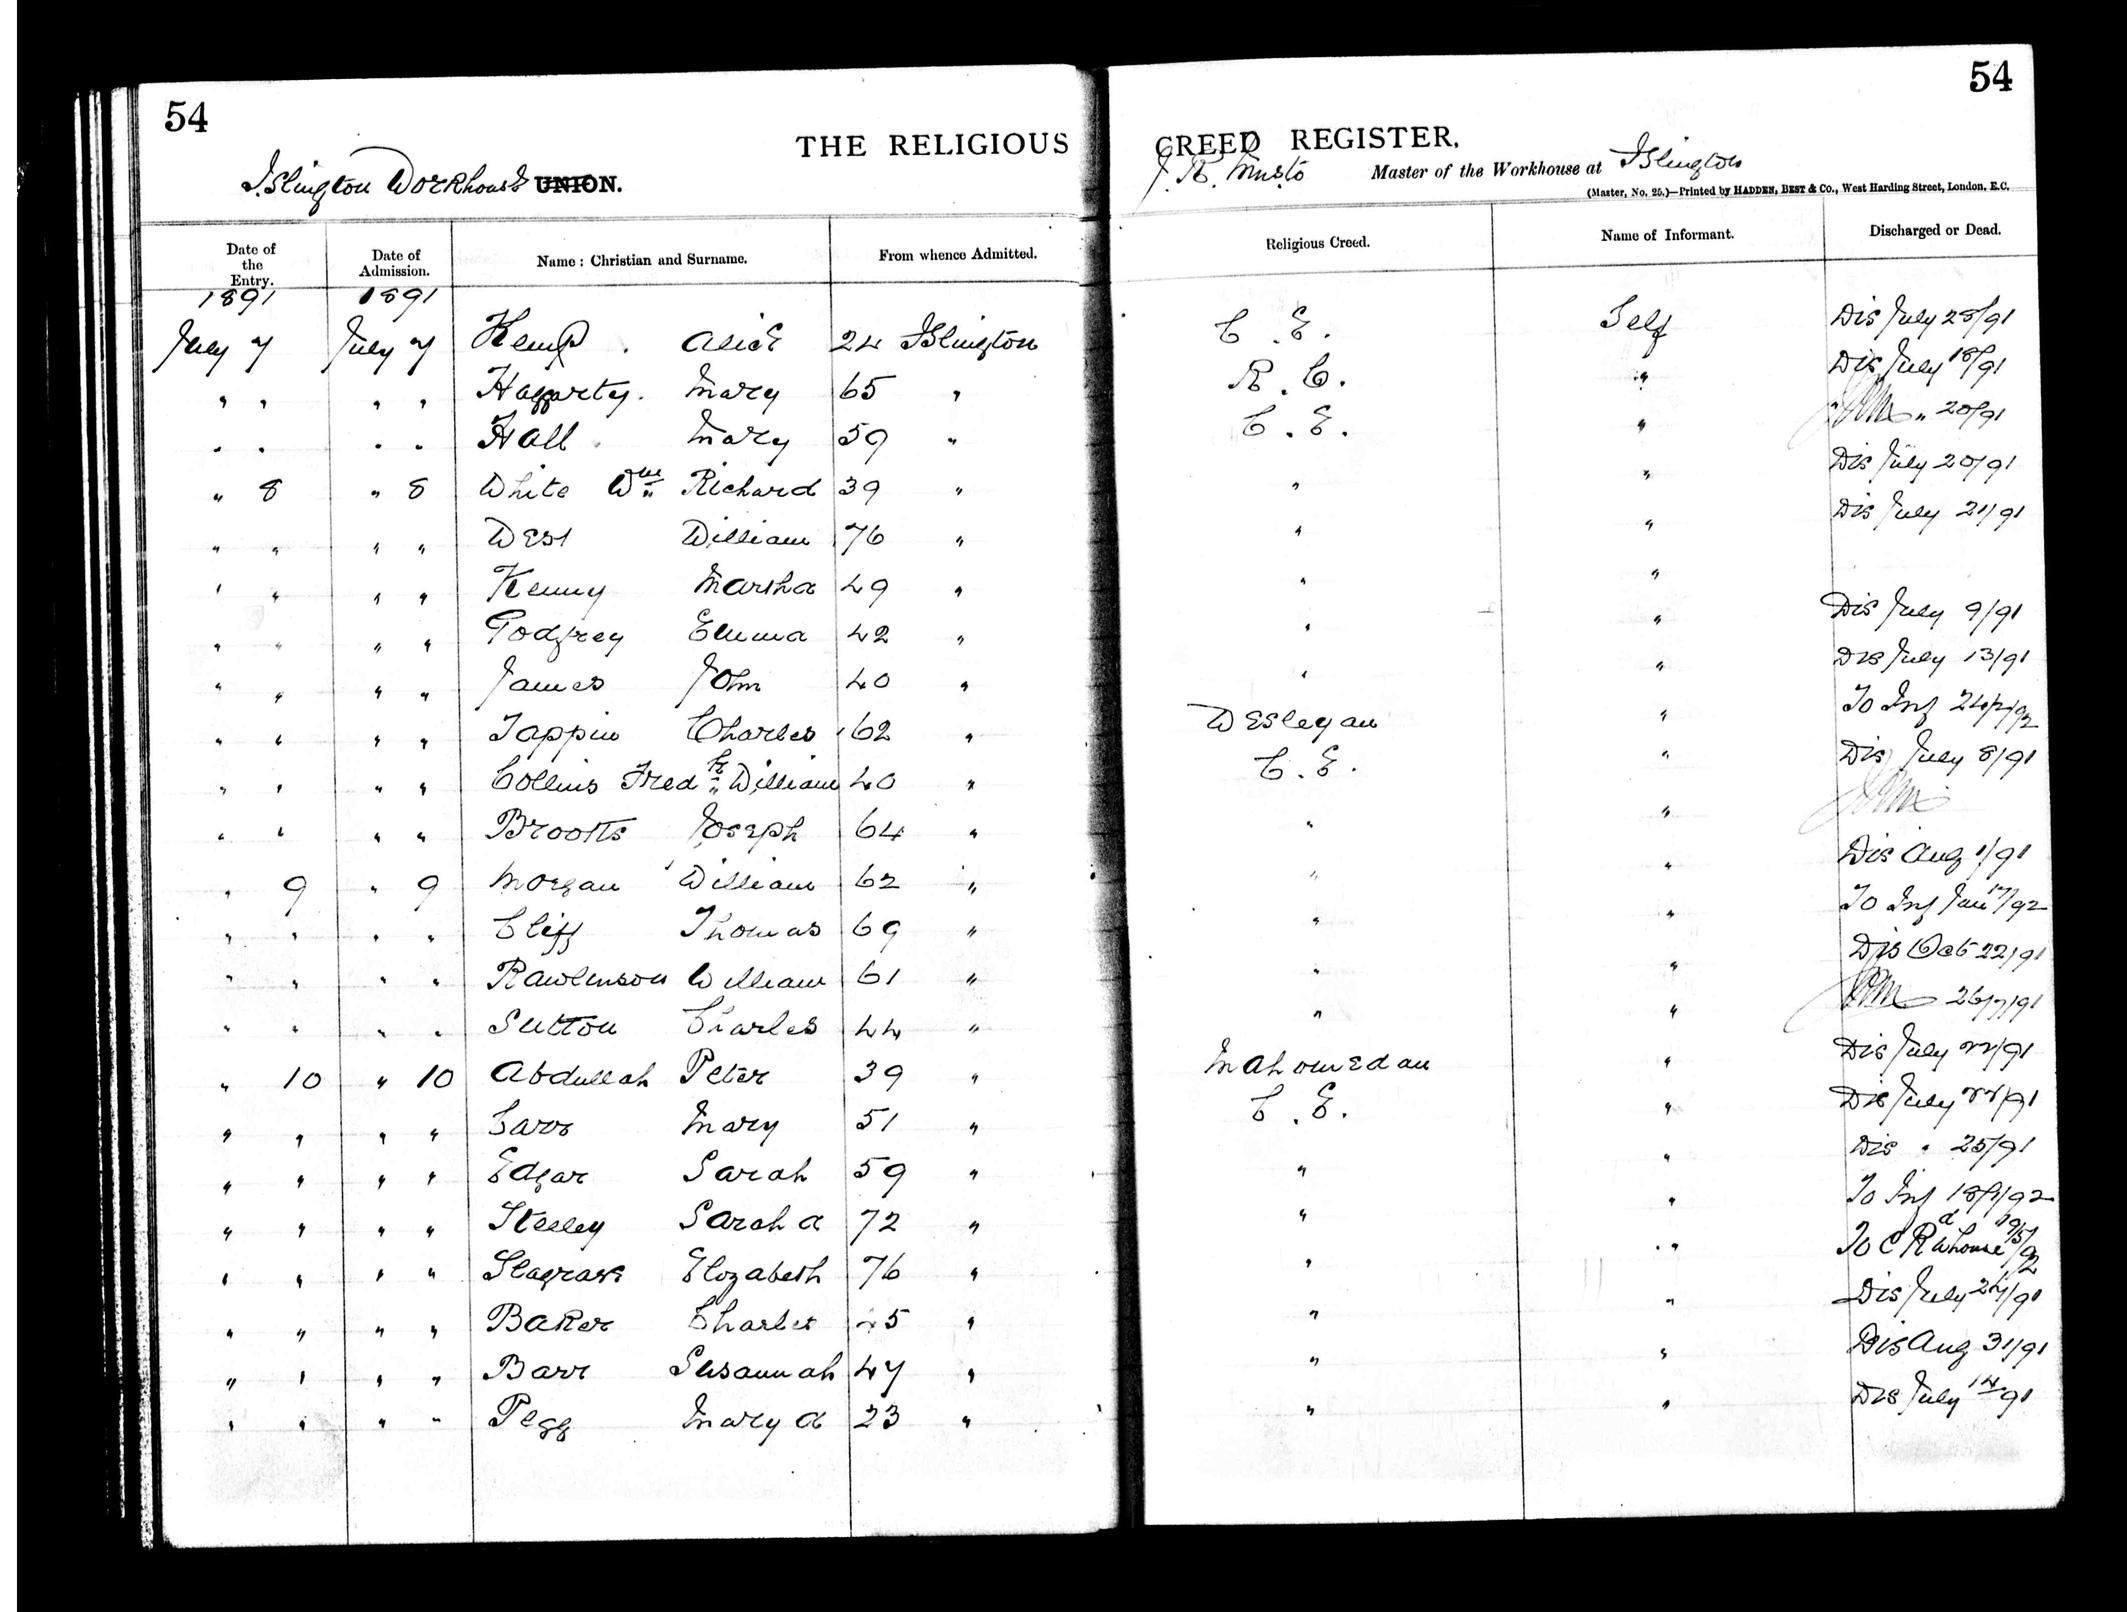 54
54
THE RELIGIOUS CREED REGISTER.
Islington Workhouse UNION.
J. R. Musto Master of the Workhouse at Islington
(Master, No. 25.)—Printed by HADDEN, BEST & Co., West Harding Street, London, E.C.
Date of the Entry. Date of Admission. Name: Christian and Surname. From whence Admitted. Religious Creed. Name of Informant. Discharged or Dead.
1891 1891
July 7 July 7 Kemp Alice 24 Islington C. E. Self Dis July 28/91
" " " " Haggarty. Mary 65 " R. C. " Dis July 18/91
" " " " Hall Mary 59 " C. E. " " 20/91
" 8 " 8 White Wm Richard 39 " " " Dis July 20/91
" " " " West William 76 " " " Dis July 21/91
" " " " Kenny Martha 49 " " "
" " " " Godfrey Emma 42 " " " Dis July 9/91
" " " " James John 40 " " " Dis July 13/91
" " " " Tappin Charles 62 " Wesleyan " To Inf
" " " " Collins Fredk William 40 " C. E. " Dis July 8/91
" " " " Brooks Joseph 64 " " "
" 9 " 9 Morgan William 62 " " " Dis Aug 1/91
" " " " Cliff Thomas 69 " " " To Inf Jan 17/92
" " " " Rawlinson William 61 " " " Dis Oct 22/91
" " " " Sutton Charles 44 " " " 26/7/91
" 10 " 10 Abdullah Peter 39 " Mahomedan " Dis July 22/91
" " " " Carr Mary 51 " C. E. " Dis July 22/91
" " " " Edgar Sarah 59 " " " Dis " 25/91
" " " " Sarah A 72 " " " To Inf 18/1/92
" " " " Seagrave Elizabeth 76 " " " To C Rd Whouse 19/5/92
" " " " Baker Charles 45 " " " Dis July 24/91
" " " " Barr Susannah 47 " " " Dis Aug 31/91
" " " " Pegg Mary A 23 " " " Dis July 14/91